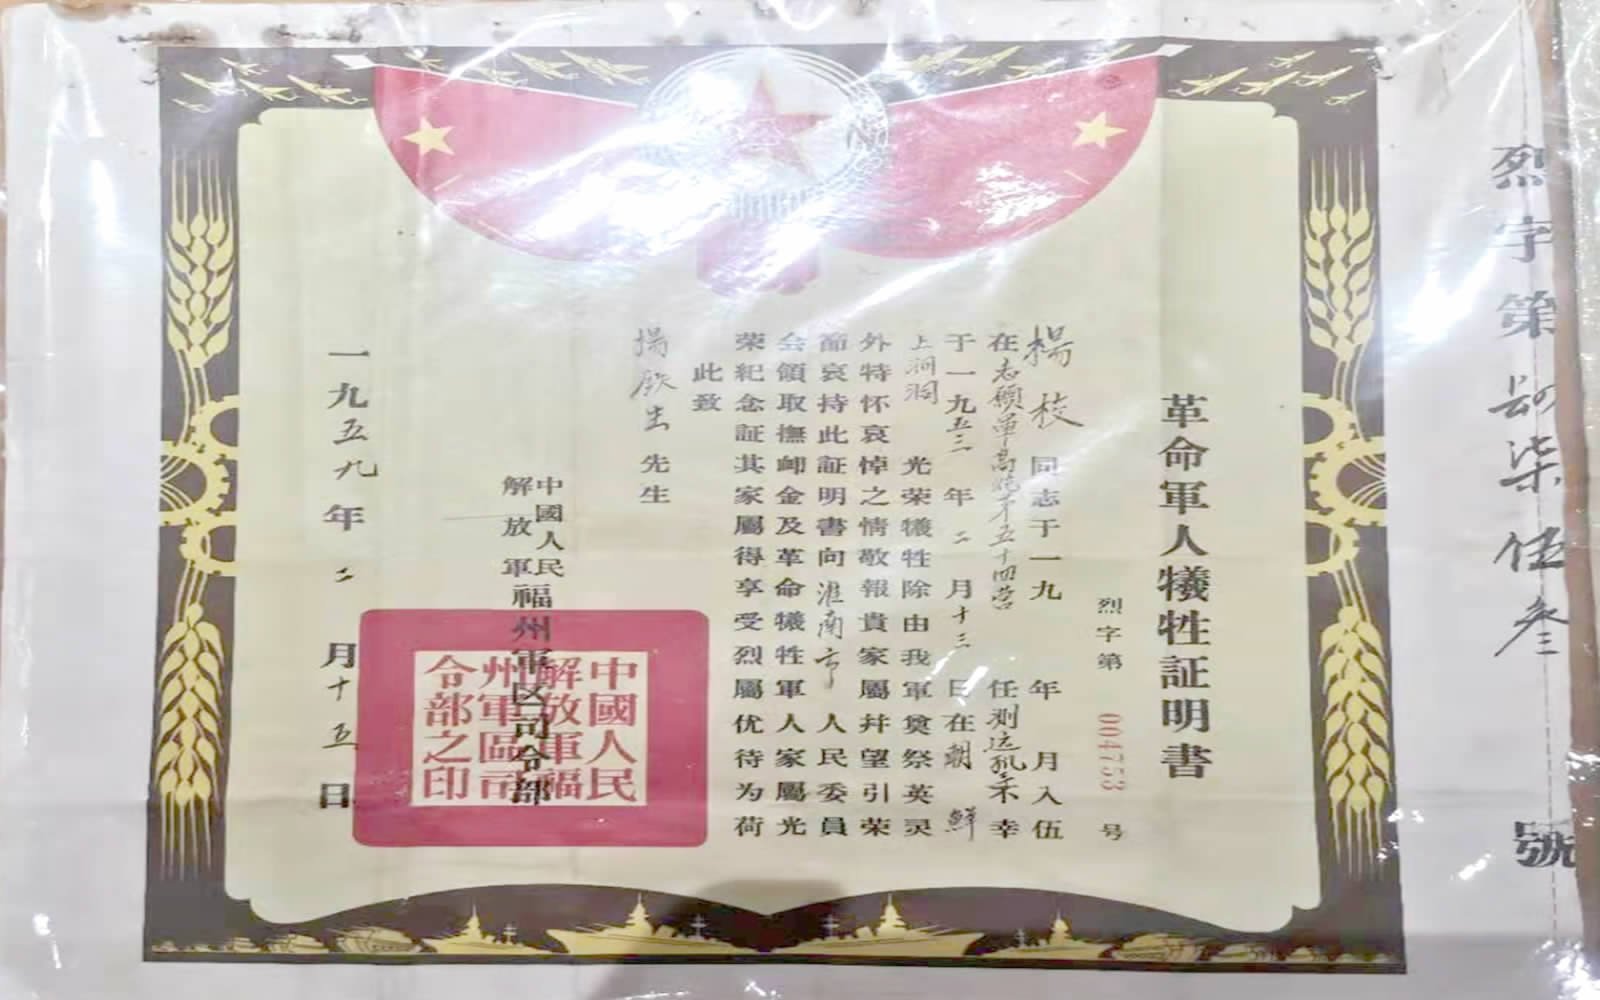 烈字第 柒伍叁 號
革命軍人犧牲証明書
烈字第 004753 号
楊校同志于一九 年 月入伍
在志願軍高炮才五十四营 任測远机手不幸
于一九五三年二月十三日在朝鮮
上洞洞 光荣犧牲除由我軍奠祭英灵
外特怀哀悼之情敬報貴家屬幷望引荣
節哀持此証明書向淮南市人民委員
会領取撫卹金及革命犧牲軍人家屬光
荣紀念証其家屬得享受烈屬优待为荷
此致
楊欽生先生
中國人民
解放軍福州軍区司令部
中國人民
解放軍福
州軍區司
令部之印
一九五九年二月十五日